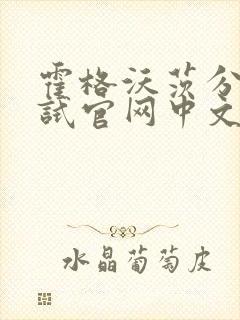 霍格沃茨分
試官网中文
水晶葡萄皮